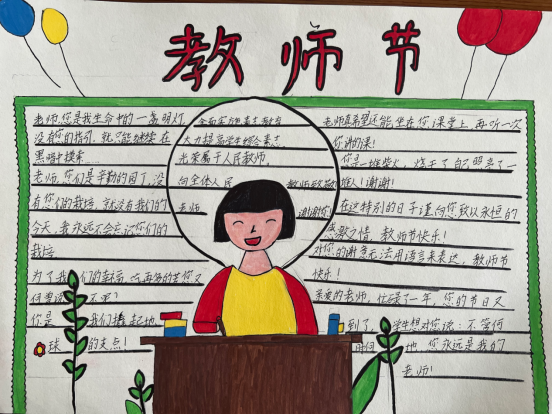 教师节
老师,您是我生命中的一盏明灯,
没有您的指引,就只能继续在
黑暗中摸索
老师,您们是辛勤的园丁,没
有您们的栽培,就没有我们的
今天,我永远不会忘记您们的
栽培
为了我们的幸福,吃再多的苦您又
何曾说 不呢?
你是 我们撬起地
球 的支点!
全面实施素质教育
大力提高学生综合素质
光荣属于人民教师,
向全体人民 教师致敬
老师 谢谢你
老师真希望还能坐在您课堂上,再听一次
您讲的课!
您是一堆柴火,烧干了自己照亮了一
堆人!谢谢!
在这特别的日子谨向您致以永恒的
感激之情,教师节快乐!
对您的谢意无法用语言来表达,教师节
快乐!
亲爱的老师,忙碌了一年,您的节日又
到了,学生想对您说:不管何
时何 地,您永远是我的
老师!